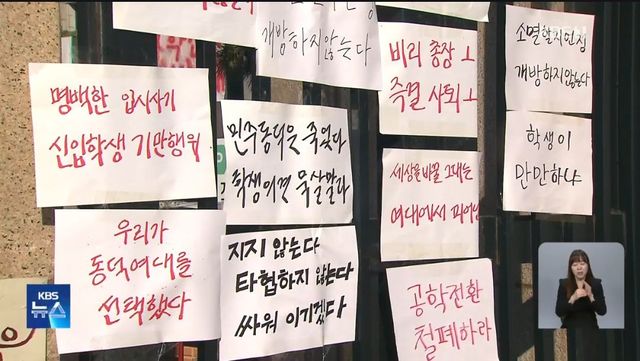 개방하지않는다
비리 총장
즉결 사퇴
소멸할지언정
개방하지않는다
명백한 입시사기
신입학생 기만행위
민주동덕은 죽었다
학생의견 묵살말라
학생이
만만하냐
세상을 바꿀 그대는
여대에서 피어난
우리가
동덕여대를
선택했다
지지 않는다
타협하지 않는다
싸워 이기겠다
공학전환
철폐하라
KBS
뉴스